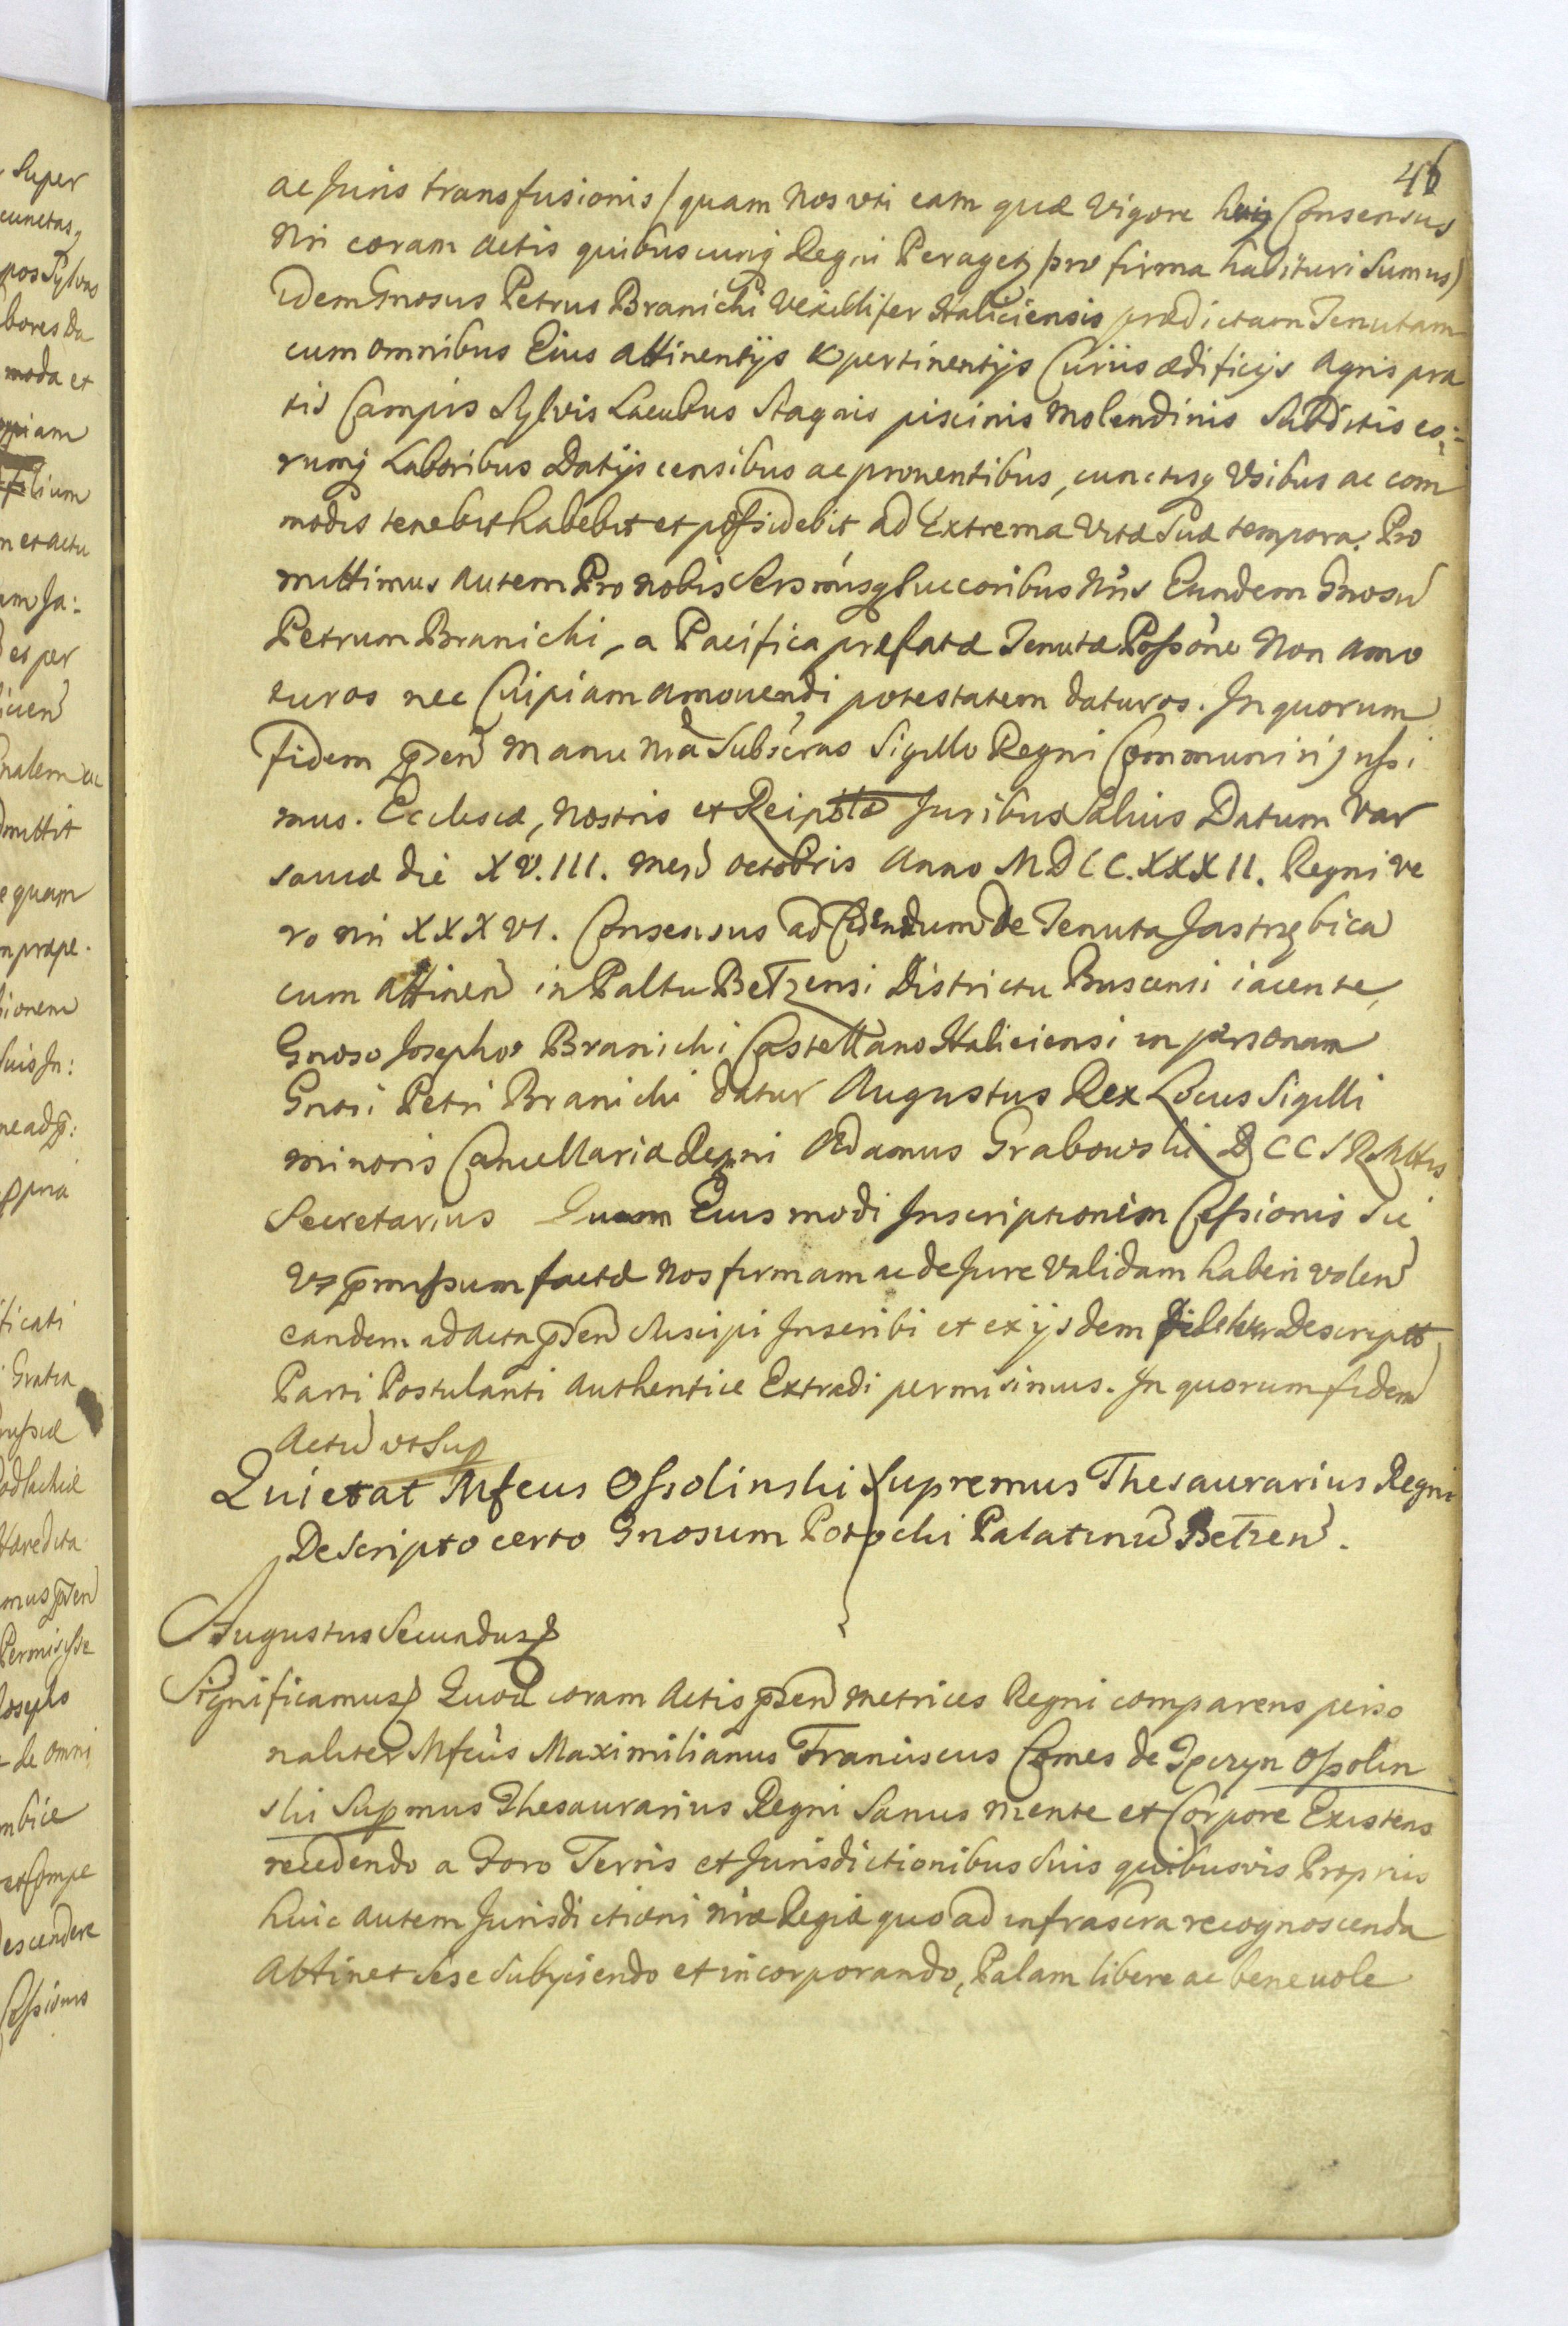 46
ac Juris transfusionis /quam Nos uti eam quæ Vigore huiq Consensus
Nri coram Actis quibuscunq Regni Peraget, pro firma habituri Sumus)
idem Gnosus Petrus Branicki Vexillifer Haliciensis prædictam Tenutam
cum omnibus Eius attinentijs & pertinentijs Curiis ædificijs Agris pra
tis Campis Sylvis Lacubus Stagnis piscinis Molendinis Subditis eo:
rumq Laboribus Datijs censibus ac prouentibus, cunctisq Usibus ac com
modis tenebit habebit et possidebit ad Extrema Vitæ Suæ tempora. Pro
mittimus autem Pro nobis Sersmisq Succoribus Nris Eundem Gnosu
Petrum Branicki, a Pacifica præfatæ Tenutæ Possone Non amo
turos nec Cuipiam amouendi potestatem daturos. In quorum
fidem psen Manu Nra Subscras Sigillo Regni Communiri jussi
mus. Ecclesiæ, Nostris et Reiptæ Juribus Saluis Datum Var
sauiæ die XV.III. Mens Octobris Anno MDCC.XXXII. Regni ve
ro Nri XXXVI. Consensus ad Cedendum de Tenuta Jastrzębica
cum Attinen in Paltu Betzensi Districtu Buscensi iacente
Gnoso Josepho Branicki Castellano Haliciensi in personam
Gnosi Petri Branicki datur Augustus Rex Locus Sigilli
minoris Cancellariæ Regni Adamus Grabowski D CC S R Mttis
Secretarius Quam Eiusmodi Inscriptionem Cessionis Sic
Vt prmissum factæ Nos firmam ac de Jure Validam haberi volen
eandem ad Acta psen Suscipi Inscribi et ex ijsdem fideliter Descriptt
Parti Postulanti Authentice Extradi permisimus. In quorum fidem
Actu vt Sup
Quietat Mfcus Ossolinski Supremus Thesaurarius Regni
Descripto certo Gnosum Potocki Palatinu Betzen.
Augustus Secundus
Significamus Quod coram Actis psen Metrices Regni comparens perso
naliter Mfcus Maximilianus Franciscus Comes de Tęczyn Ossolin
ski Supmus Thesaurarius Regni Sanus mente et Corpore Existens
recedendo a Foro Terris et Jurisdictionibus Suis quibusvis Proprijs
huic autem Jurisdictioni Nræ Regiæ quo ad infrascra recognoscenda
Attinet Sese Subyciendo et incorporando, Palam libere ac beneuole